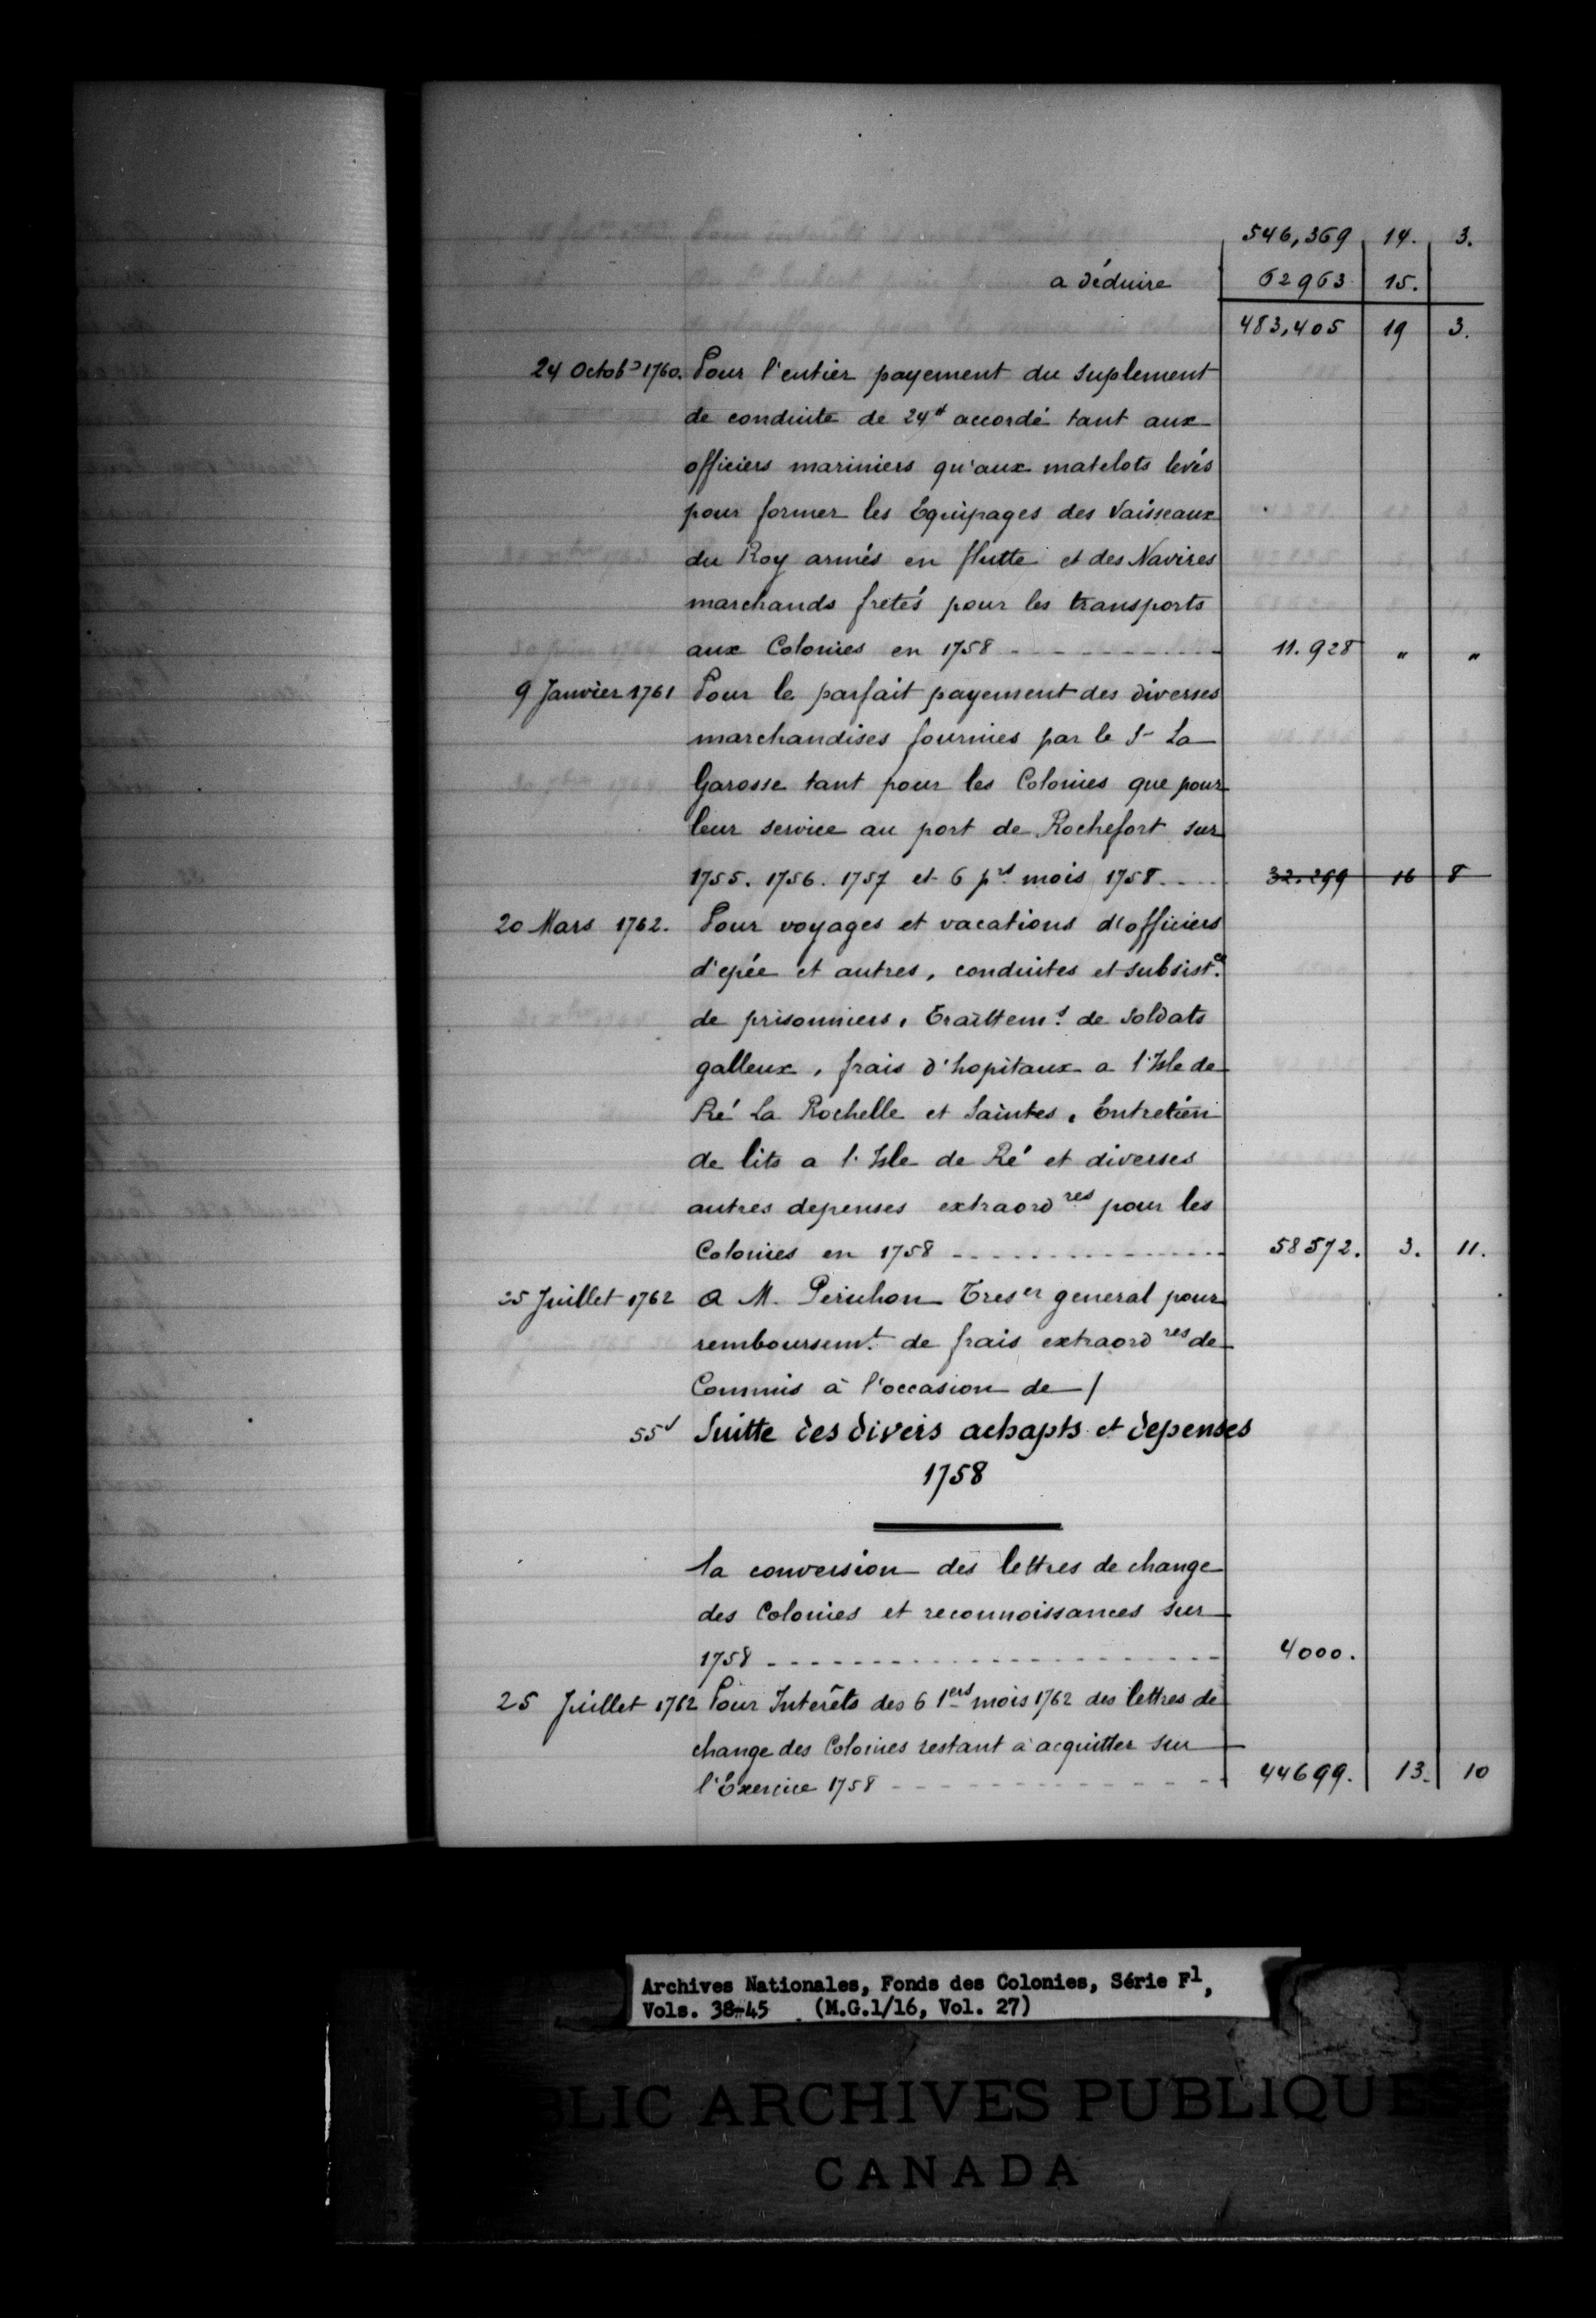 546,369 14. 3.
a déduire 62963 15.
483,405 19 3.
24 Octobre 1760. Pour l'entier payement du suplement
de conduite de 24# accordé tant aux
officiers mariniers qu'aux matelots levés
pour former les Equipages des Vaisseaux
du Roy armés en flutte et des Navires
marchands fretés pour les transports
aux Colonies en 1758 - - - - - - - - - - 11.928 " "
9 Janvier 1761 Pour le parfait payement des diverses
marchandises fournies par le Sr La
Garosse tant pour les Colonies que pour
leur service au port de Rochefort sur
1755. 1756. 1757 et 6 prs mois 1758. - - - 32.299 16 8
20 Mars 1762. Pour voyages et vacations d'officiers
d'epée et autres, conduites et subsistce
de prisonniers, Traîttems de soldats
galleux, frais d'hopitaux a l'Isle de
Ré La Rochelle et Saintes, Entretien
de lits a l'Isle de Ré et diverses
autres depenses extraordres pour les
Colonies en 1758 - - - - - - - - - - - - 58572. 3. 11.
25 Juillet 1762 a M. Perichon Treser general pour
remboursemt de frais extraordres de
Commis à l'occasion de /
55 Suitte des divers achapts et depenses
1758
la conversion des lettres de change
des Colonies et reconnoissances sur
1758 - - - - - - - - - - - - - - - - - - - - 4000.
25 Juillet 1762 Pour Interêts des 6 1ers mois 1762 des lettres de
change des Colonies restant à acquitter sur
l'Exercice 1758 - - - - - - - - - - - - - - 44699. 13. 10
Archives Nationales, Fonds des Colonies, Série F1,
Vols. 38-45 (M.G.1/16, Vol. 27)
BLIC ARCHIVES PUBLIQUES
CANADA